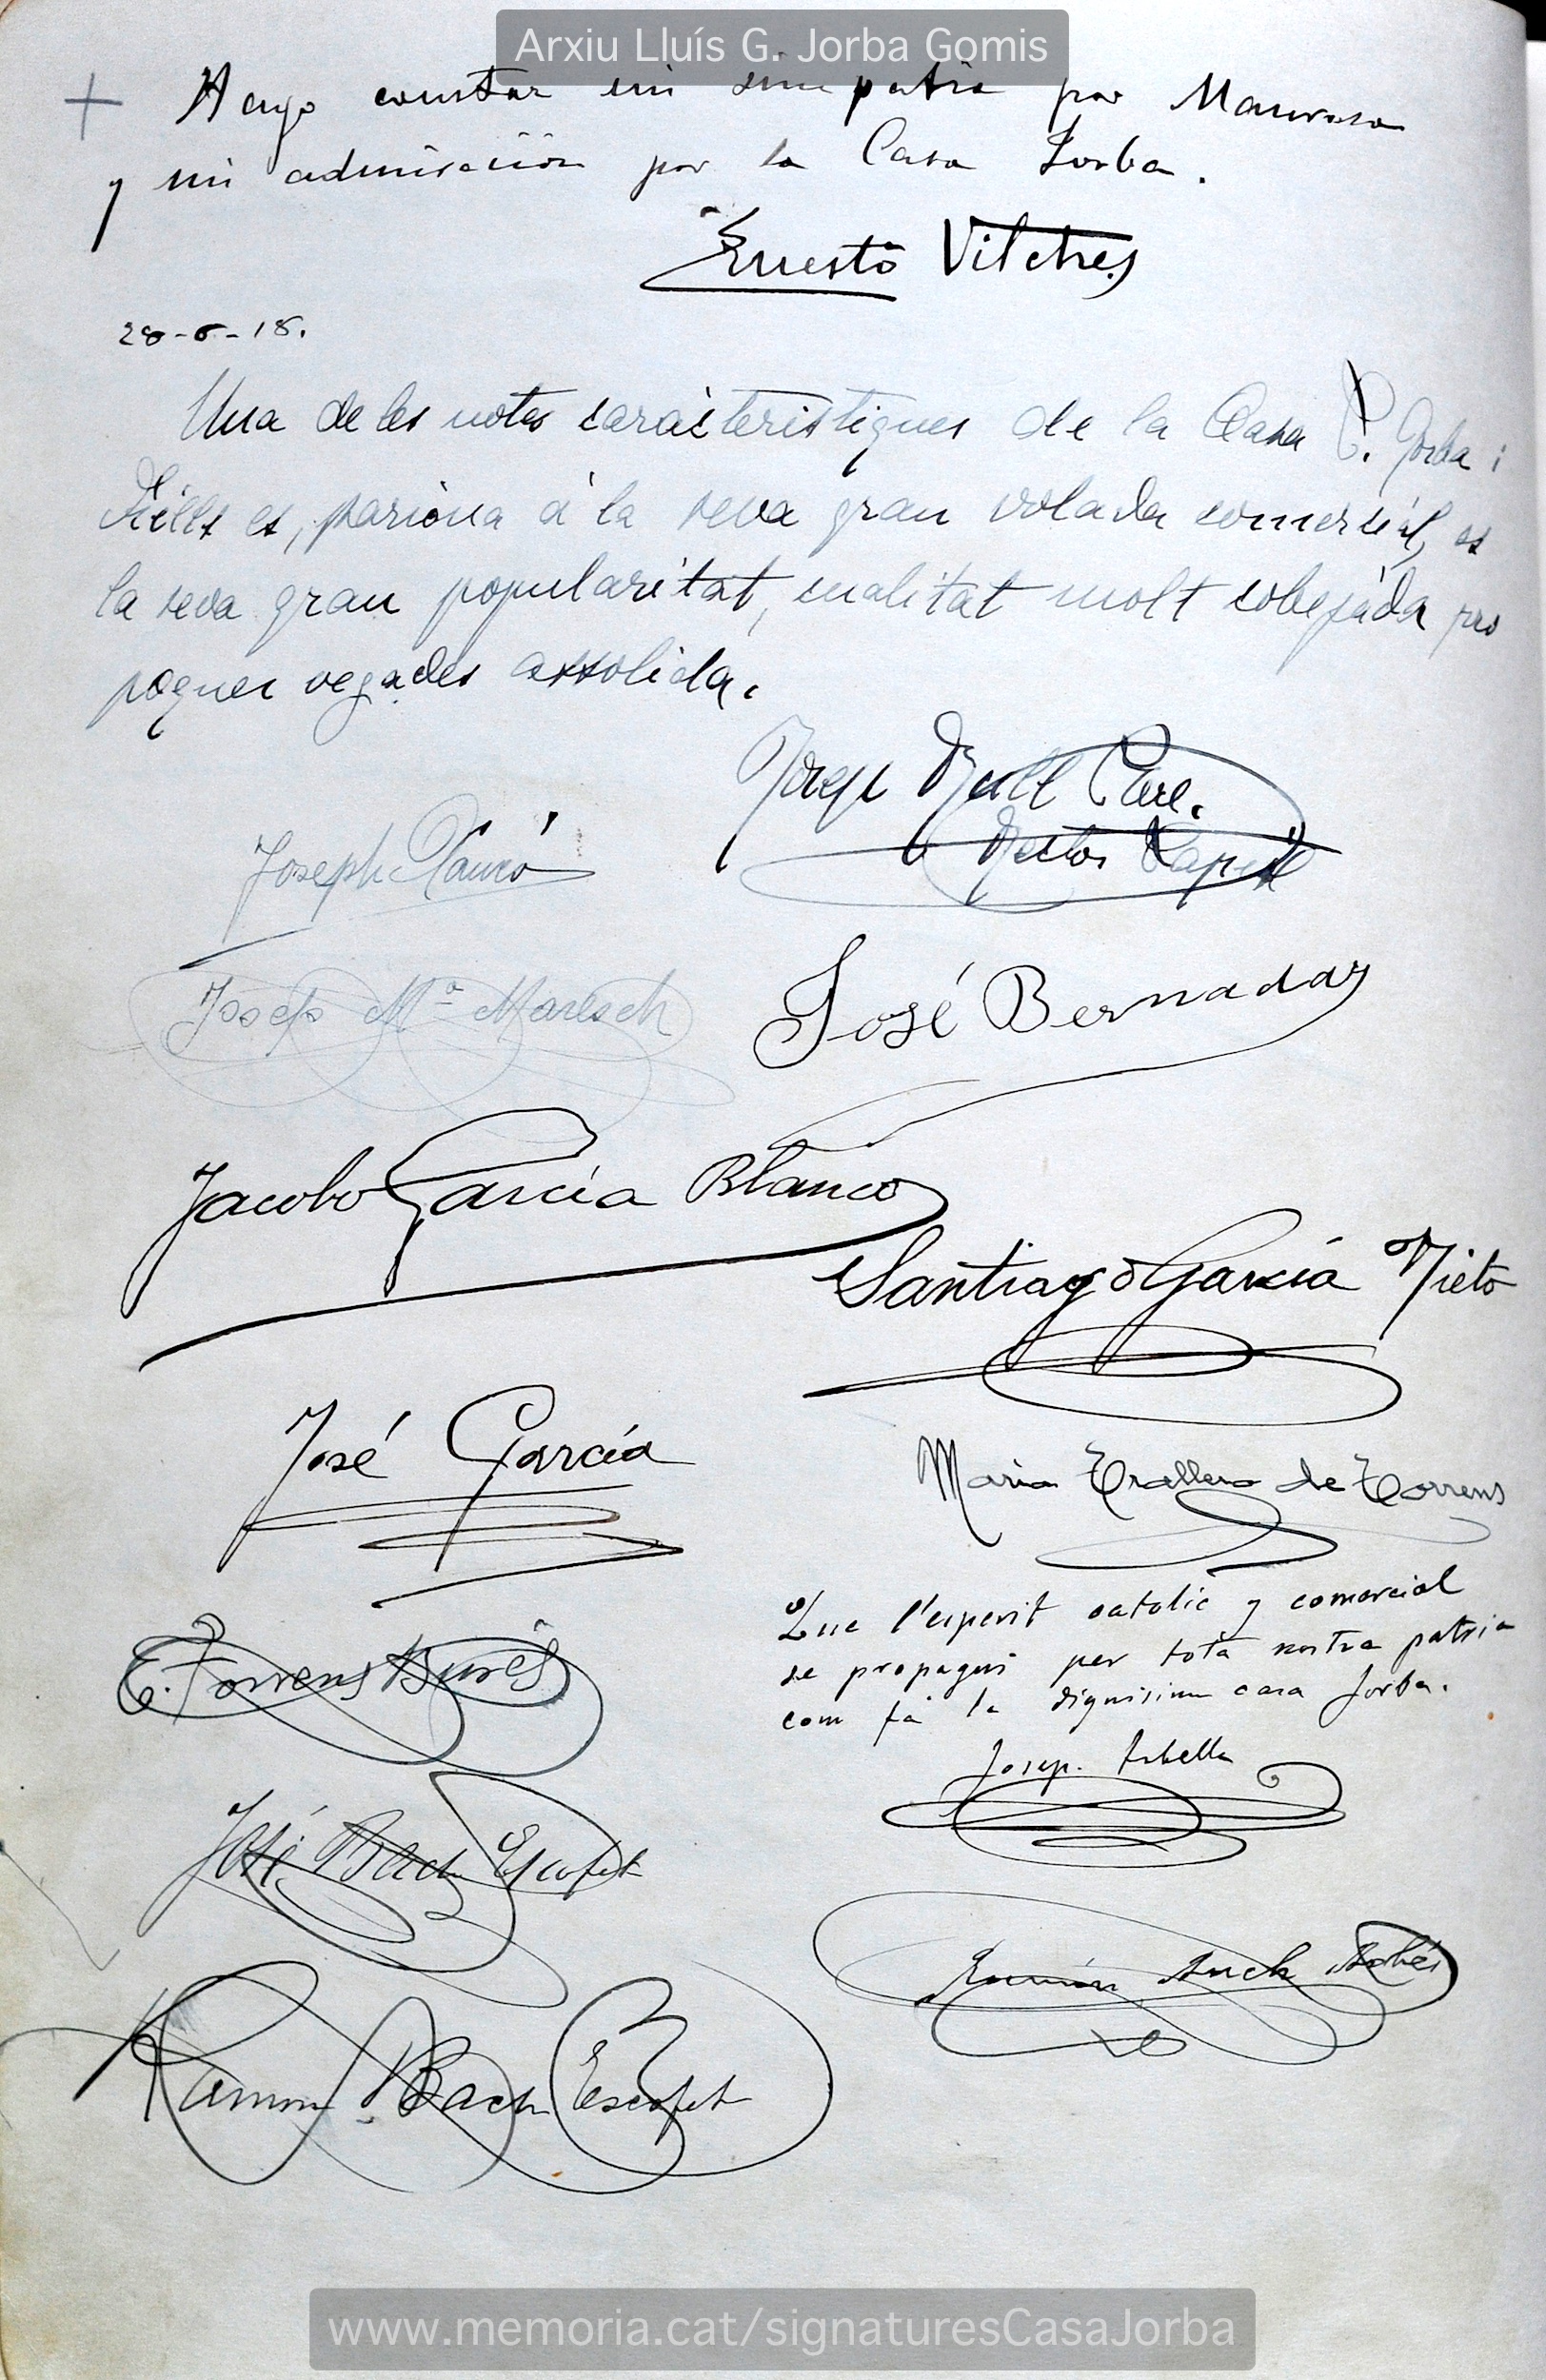 Arxiu Lluís G. Jorba Gomis
Hago constar mi simpatia por Manresa
y mi admiración por la Casa Jorba.
Ernesto Vilches
28-6-18.
Una de les notes caracteristiques de la Casa P. Jorba i
Fills es, pariona á la seva gran volada comercial, es
la seva gran popularitat, cualitat molt cobejada pro
poques vegades assolida.
Josep Pvre.
Joseph
Josep Mª Maresch
José Bernadas
Jacobo García Blanco
Santiago García Nieto
José García
Maria Trallero de Torrens
E. Torrens Burés
Que l'esperit catolic y comercial
se propagui per tota nostra patria
com fá la dignisima casa Jorba.
Josep. Arbella
José Bach Escofet
Ramón
Ramon Bach Escofet
www.memoria.cat/signaturesCasaJorba